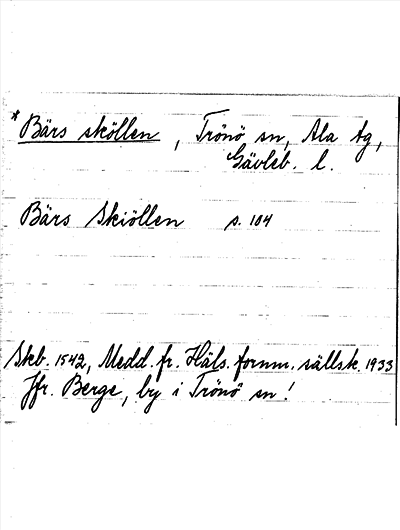 * Bärs sköllen, Trönö sn, Ala tg,
Gävleb. l.
Bärs Skiöllen s. 104
Skb. 1542, Medd. fr. Häls. fornm. sällsk. 1933
Jfr. Berge, by i Trönö sn!